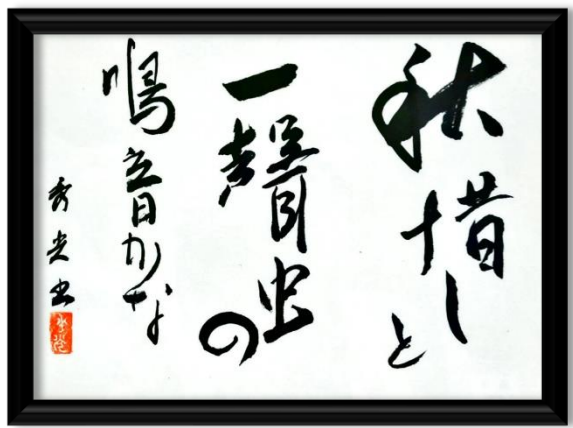 秋惜しと
一聲虫の
鳴音かな
秀光書